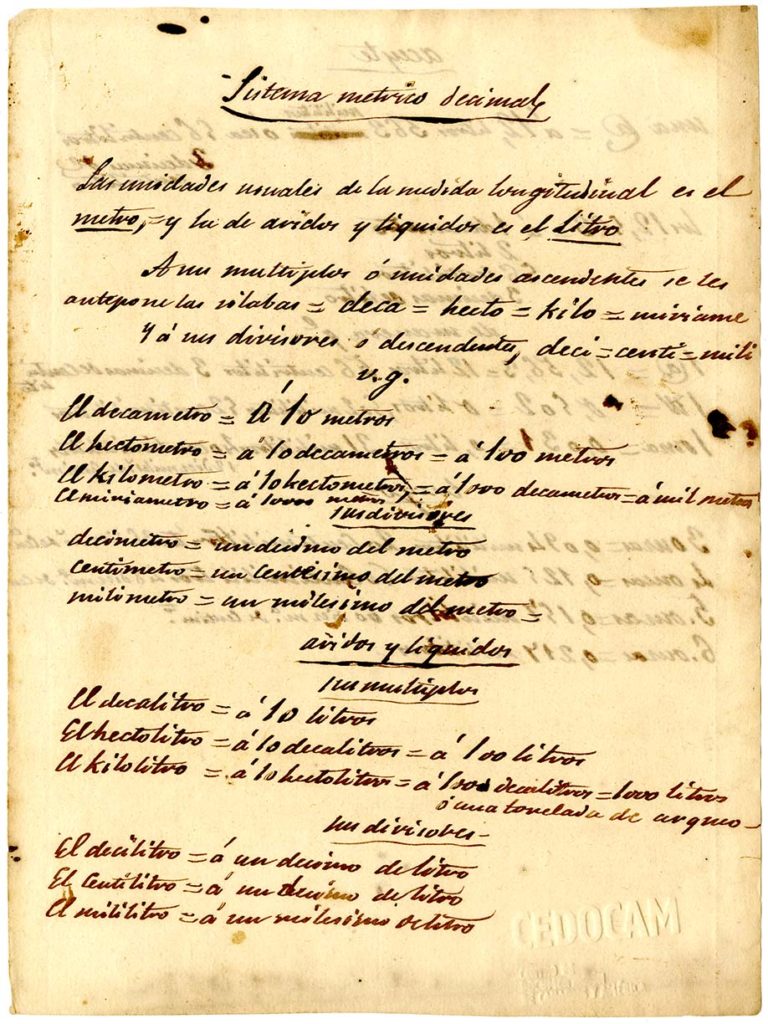 Sistema metrico decimal
Las unidades usuales de la medida longitudinal es el
metro, = y la de aridos y liquidos es el Litro
A sus multiplos ó unidades ascendentes se les
antepone las silabas = deca = hecto = kilo = miriame
Y á sus divisores o descendentes, deci = centi = mili
v.g.
El decametro = á 10 metros
El hectometro = á 10 decametros = á 100 metros
El kilometro = á 10 hectometros = á 100 decametros = á mil metros
El miriametro = á 10000 metros
sus divisóres
decimetro = un decimo del metro
centimetro = un centesimo del metro
milimetro = un milesimo del metro =
aridos y liquidos
sus multiplos
El decalitro = á 10 litros
El hectolitro = á 10 decalitros = á 100 litros
El kilolitro = á 10 hectolitros = á 100 decalitros = 1000 litros
ó una tonelada de arqueo
sus divisores
El decilitro = á un decimo de litro
El centilitro = á un decimo de litro
El mililitro = á un milesimo de litro
CEDOCAM